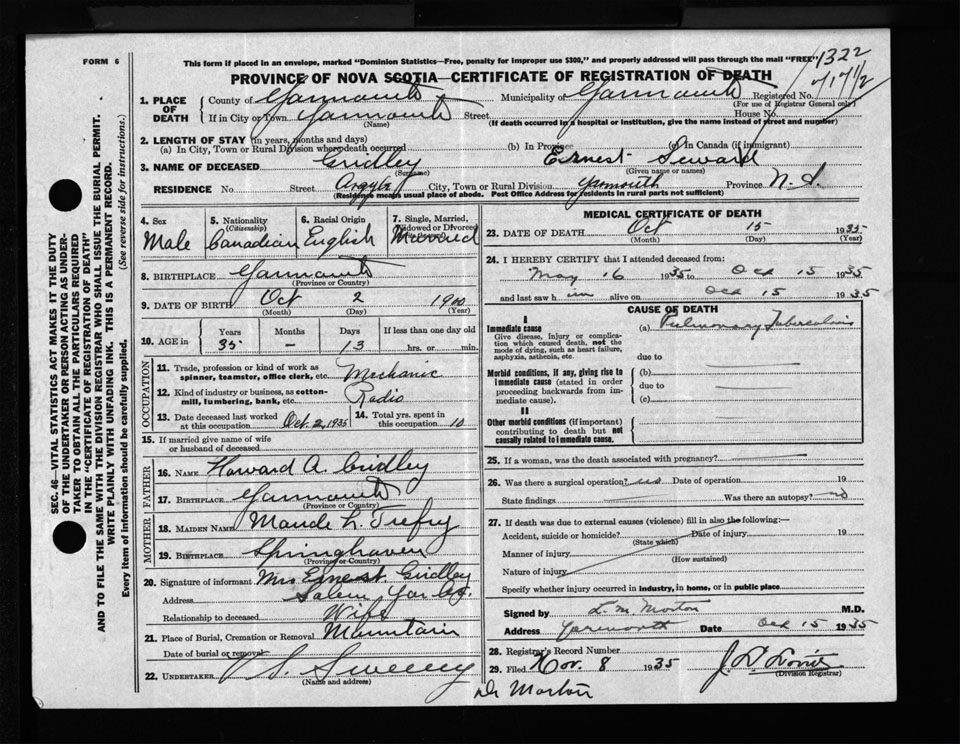 FORM 6
This form if placed in an envelope, marked "Dominion Statistics—Free, penalty for improper use $300," and properly addressed will pass through the mail "FREE"
1322
PROVINCE OF NOVA SCOTIA—CERTIFICATE OF REGISTRATION OF DEATH
1. PLACE OF DEATH
County of Yarmouth Municipality of Yarmouth Registered No.
(For use of Registrar General only)
If in City or Town Yarmouth Street House No.
(Name) (If death occurred in a hospital or institution, give the name instead of street and number)
2. LENGTH OF STAY (in years, months and days)
(a) In City, Town or Rural Division where death occurred (b) In Province (c) In Canada (if immigrant)
3. NAME OF DECEASED Gridley Ernest Seward
(Surname) (Given name or names)
RESIDENCE No Street Argyle City, Town or Rural Division Yarmouth Province N.S.
(Residence means usual place of abode. Post Office Address for residents in rural parts not sufficient)
4. Sex
Male
5. Nationality
(Citizenship)
Canadian
6. Racial Origin
English
7. Single, Married,
Widowed or Divorced
Married
8. BIRTHPLACE Yarmouth
(Province or Country)
9. DATE OF BIRTH Oct 2 1900
(Month) (Day) (Year)
10. AGE in
Years Months Days If less than one day old
35 — 13 hrs. or min.
OCCUPATION
11. Trade, profession or kind of work as
spinner, teamster, office clerk, etc. Mechanic
12. Kind of industry or business, as cotton-
mill, lumbering, bank, etc. Radio
13. Date deceased last worked
at this occupation Oct. 2, 1935
14. Total yrs. spent in
this occupation 10
15. If married give name of wife
or husband of deceased
FATHER
16. NAME Howard A. Gridley
17. BIRTHPLACE Yarmouth
(Province or Country)
MOTHER
18. MAIDEN NAME Maude L. Trefry
19. BIRTHPLACE Springhaven
(Province or Country)
20. Signature of informant Mrs Ernest Gridley
Address Salem Yar Co.
Relationship to deceased Wife
21. Place of Burial, Cremation or Removal Mountain
Date of burial or removal
22. UNDERTAKER Sweeny
(Name and address)
MEDICAL CERTIFICATE OF DEATH
23. DATE OF DEATH Oct 15 1935
(Month) (Day) (Year)
24. I HEREBY CERTIFY that I attended deceased from:
May 16 1935 to Oct 15 1935
and last saw him alive on Oct 15 1935
CAUSE OF DEATH
I
Immediate cause (a) Pulmonary Tuberculosis
Give disease, injury or complica-
tion which caused death, not the
mode of dying, such as heart failure,
asphyxia, asthenia, etc.
due to
Morbid conditions, if any, giving rise to
immediate cause (stated in order
proceeding backwards from im-
mediate cause).
(b)
due to
(c)
II
Other morbid conditions (if important)
contributing to death but not
causally related to immediate cause.
25. If a woman, was the death associated with pregnancy?
26. Was there a surgical operation? no Date of operation 19
State findings Was there an autopsy? no
27. If death was due to external causes (violence) fill in also the following:—
Accident, suicide or homicide? Date of injury 19
(State which)
Manner of injury
(How sustained)
Nature of injury
Specify whether injury occurred in industry, in home, or in public place
Signed by L. M. Morton M.D.
Address Yarmouth Date Oct 15 1935
28. Registrar's Record Number
29. Filed Nov. 8 1935
(Division Registrar)
Dr Morton
SEC. 46—VITAL STATISTICS ACT MAKES IT THE DUTY
OF THE UNDERTAKER OR PERSON ACTING AS UNDER-
TAKER TO OBTAIN ALL THE PARTICULARS REQUIRED
IN THE "CERTIFICATE OF REGISTRATION OF DEATH"
AND TO FILE THE SAME WITH THE DIVISION REGISTRAR WHO SHALL ISSUE THE BURIAL PERMIT.
WRITE PLAINLY WITH UNFADING INK. THIS IS A PERMANENT RECORD.
Every item of information should be carefully supplied. (See reverse side for instructions.)